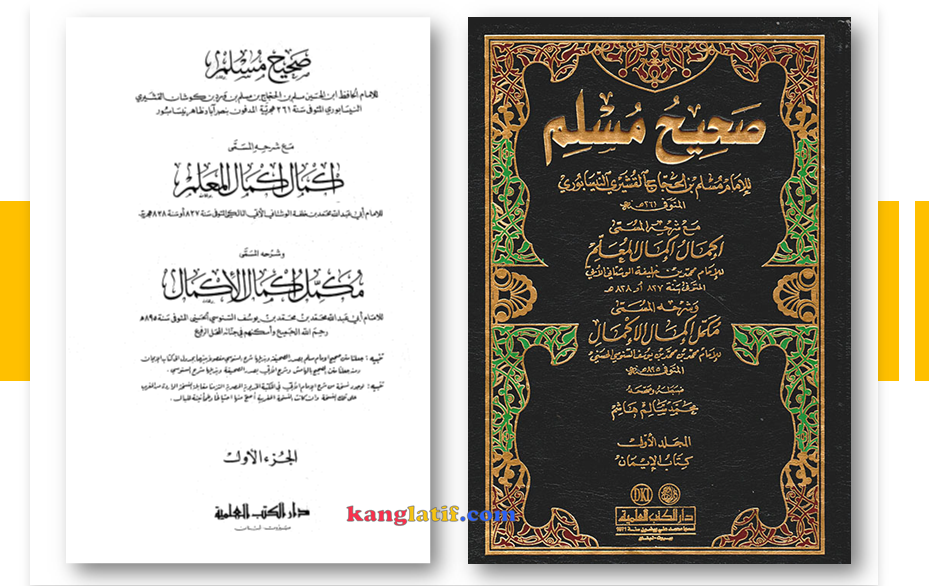 صحيح مسلم
للإمام الحافظ ابن الحسين مسلم بن الحجاج بن مسلم بن وردبن كوشان القشيري
النيسابوري المتوفى سنة ٢٦١ هجرية المدفون بنصرآباد ظاهر نيسابور
مع شرحه المسمى
إكمال إكمال المعلم
للإمام أبي عبدالله محمد بن خلفة الوشتاني الأبي المالكي المتوفى سنة ٨٢٧ أو سنة ٨٢٨ هجرية
وشرحه المسمى
مكمل إكمال الإكمال
للإمام أبي عبدالله محمد بن محمد بن يوسف السنوسي الحسيني المتوفى سنة ٨٩٥ه
رحم الله الجميع وأسكنهم في جنانه المحل الرفيع
الجزء الأول
دار الكتب العلمية
بيروت - لبنان
صحيح مسلم
للإمام مسلم بن الحجاج القشيري النيسابوري
المتوفى ٢٦١ هـ
مع شرحه المسمى
إكمال إكمال المعلم
للإمام محمد بن خليفة الوشتاني الأبي
المتوفى سنة ٨٢٧ أو ٨٢٨ هـ
وشرحه المسمى
مكمل إكمال الإكمال
للإمام محمد بن محمد بن يوسف السنوسي الحسني
المتوفى ٨٩٥ هـ
ضبطه وصححه
محمد سالم هاشم
المجلد الأول
كتاب الإيمان
DKI
دار الكتب العلمية
بيروت - لبنان
kanglatif.com